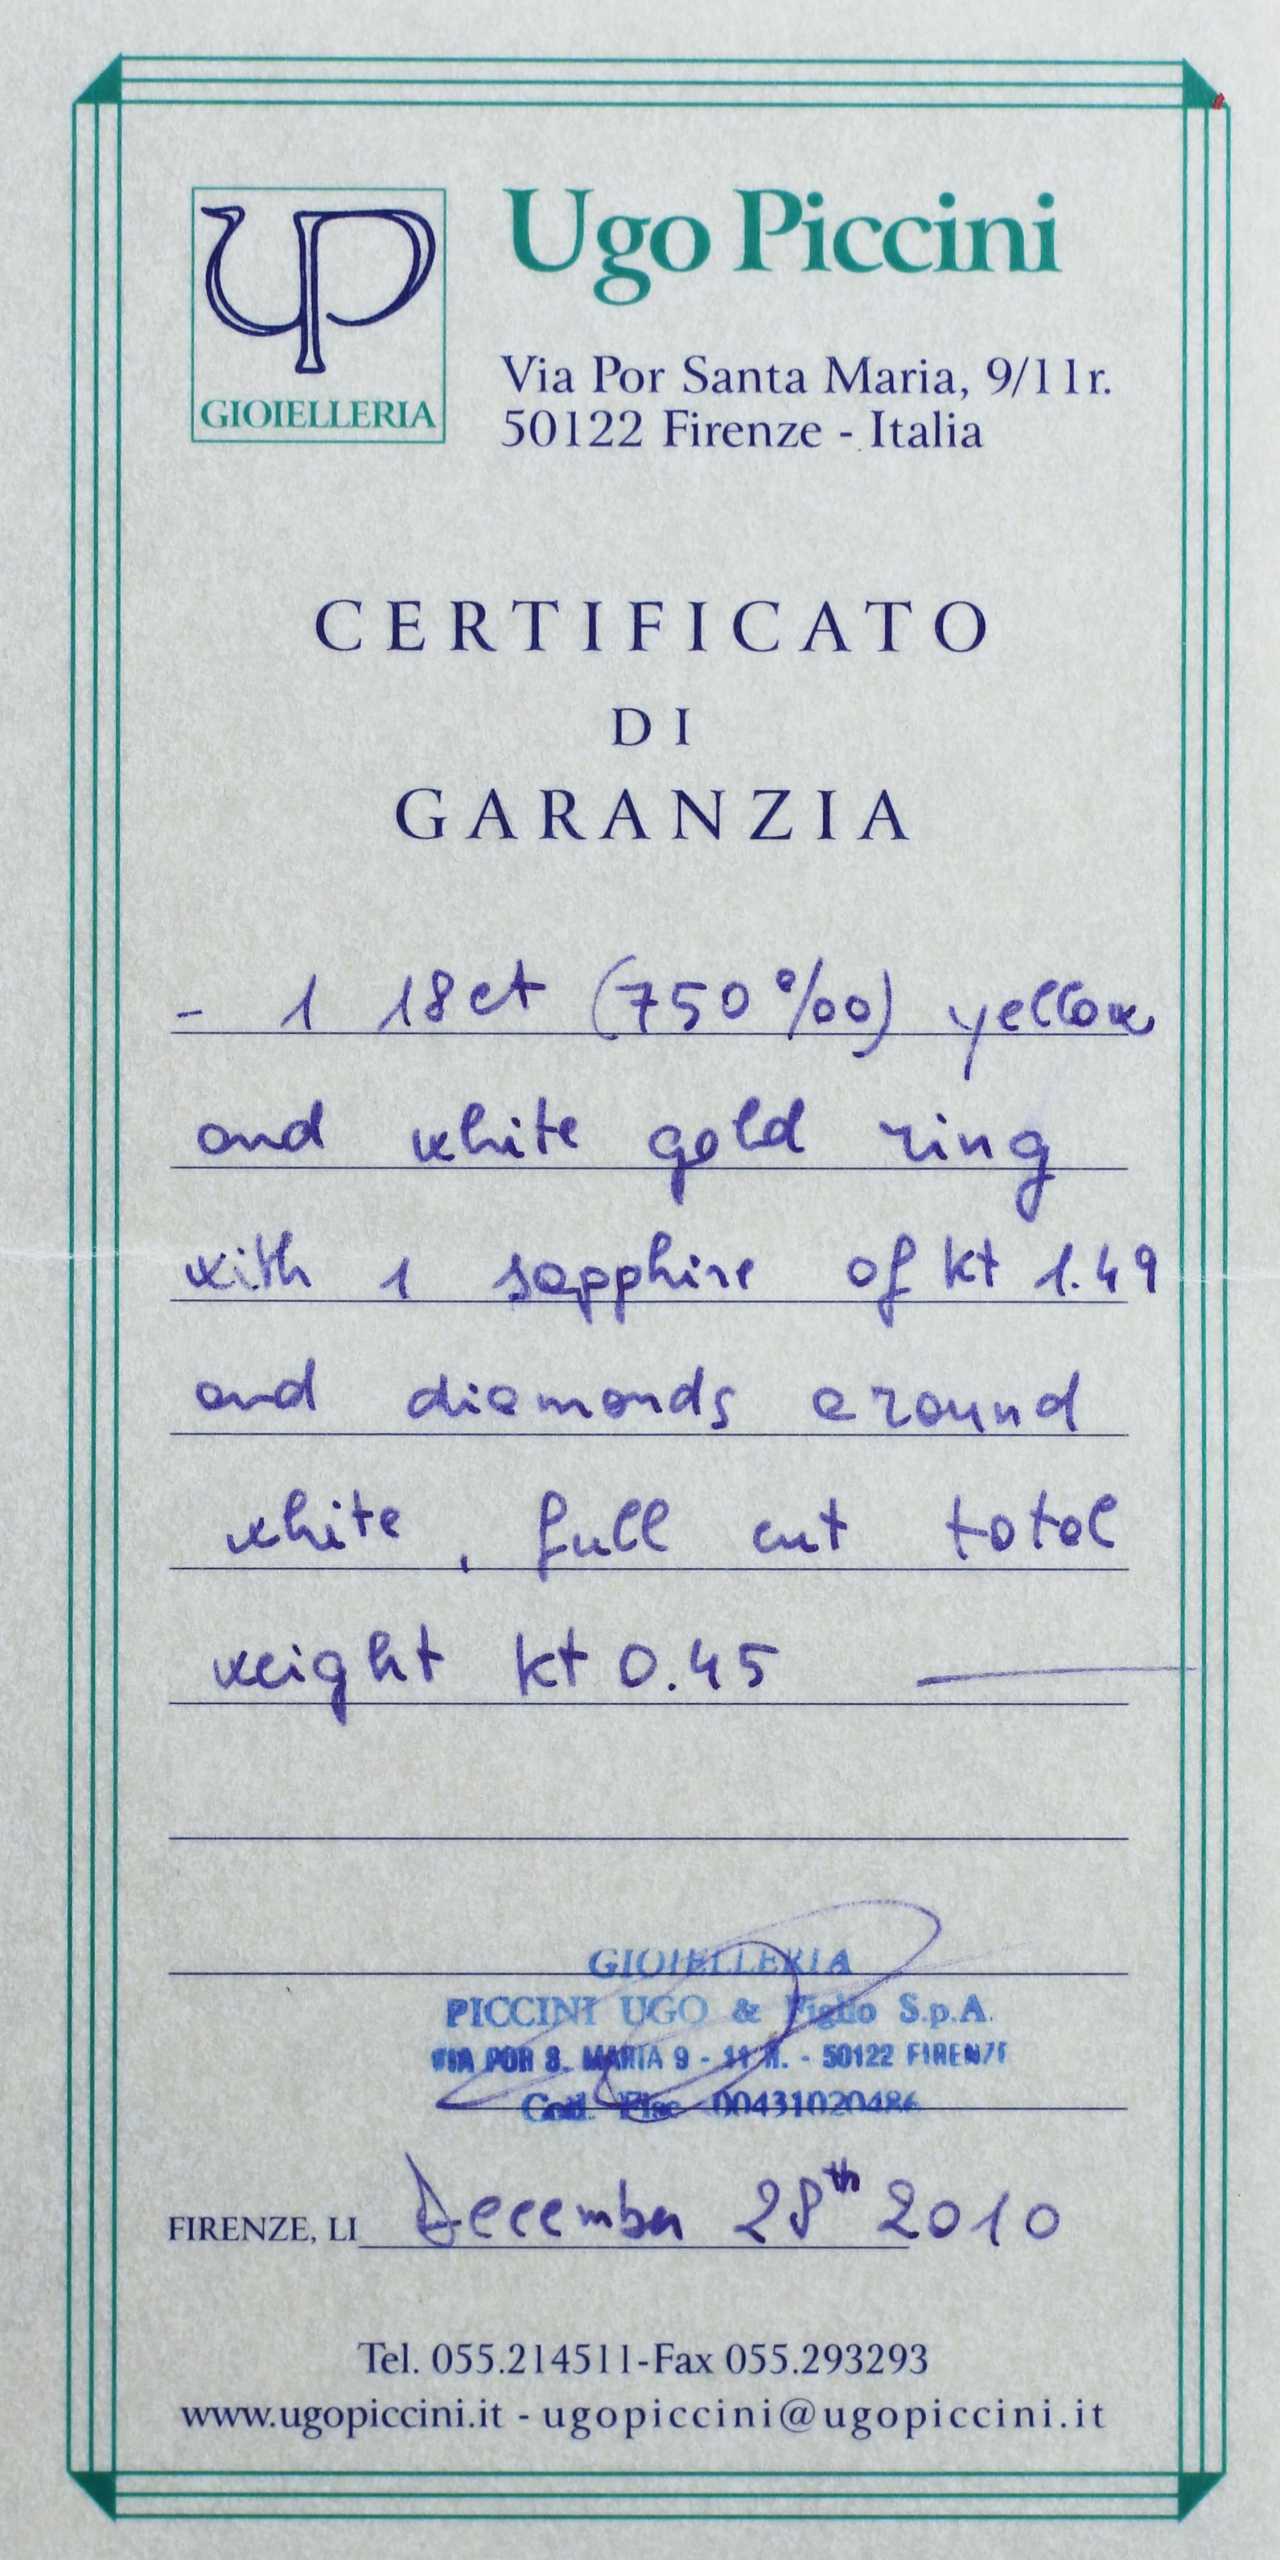 UP
GIOIELLERIA
Ugo Piccini
Via Por Santa Maria, 9/11r.
50122 Firenze - Italia
CERTIFICATO
DI
GARANZIA
- 1 18ct (750‰) yellow
and white gold ring
with 1 sapphire of kt 1.49
and diamonds around
white, full cut total
weight kt 0.45
GIOIELLERIA
PICCINI UGO & Figlio S.p.A.
VIA POR S. MARIA 9 - 11 R. - 50122 FIRENZE
Cod. Fisc. 00431020486
FIRENZE, LI December 28th 2010
Tel. 055.214511-Fax 055.293293
www.ugopiccini.it - ugopiccini@ugopiccini.it